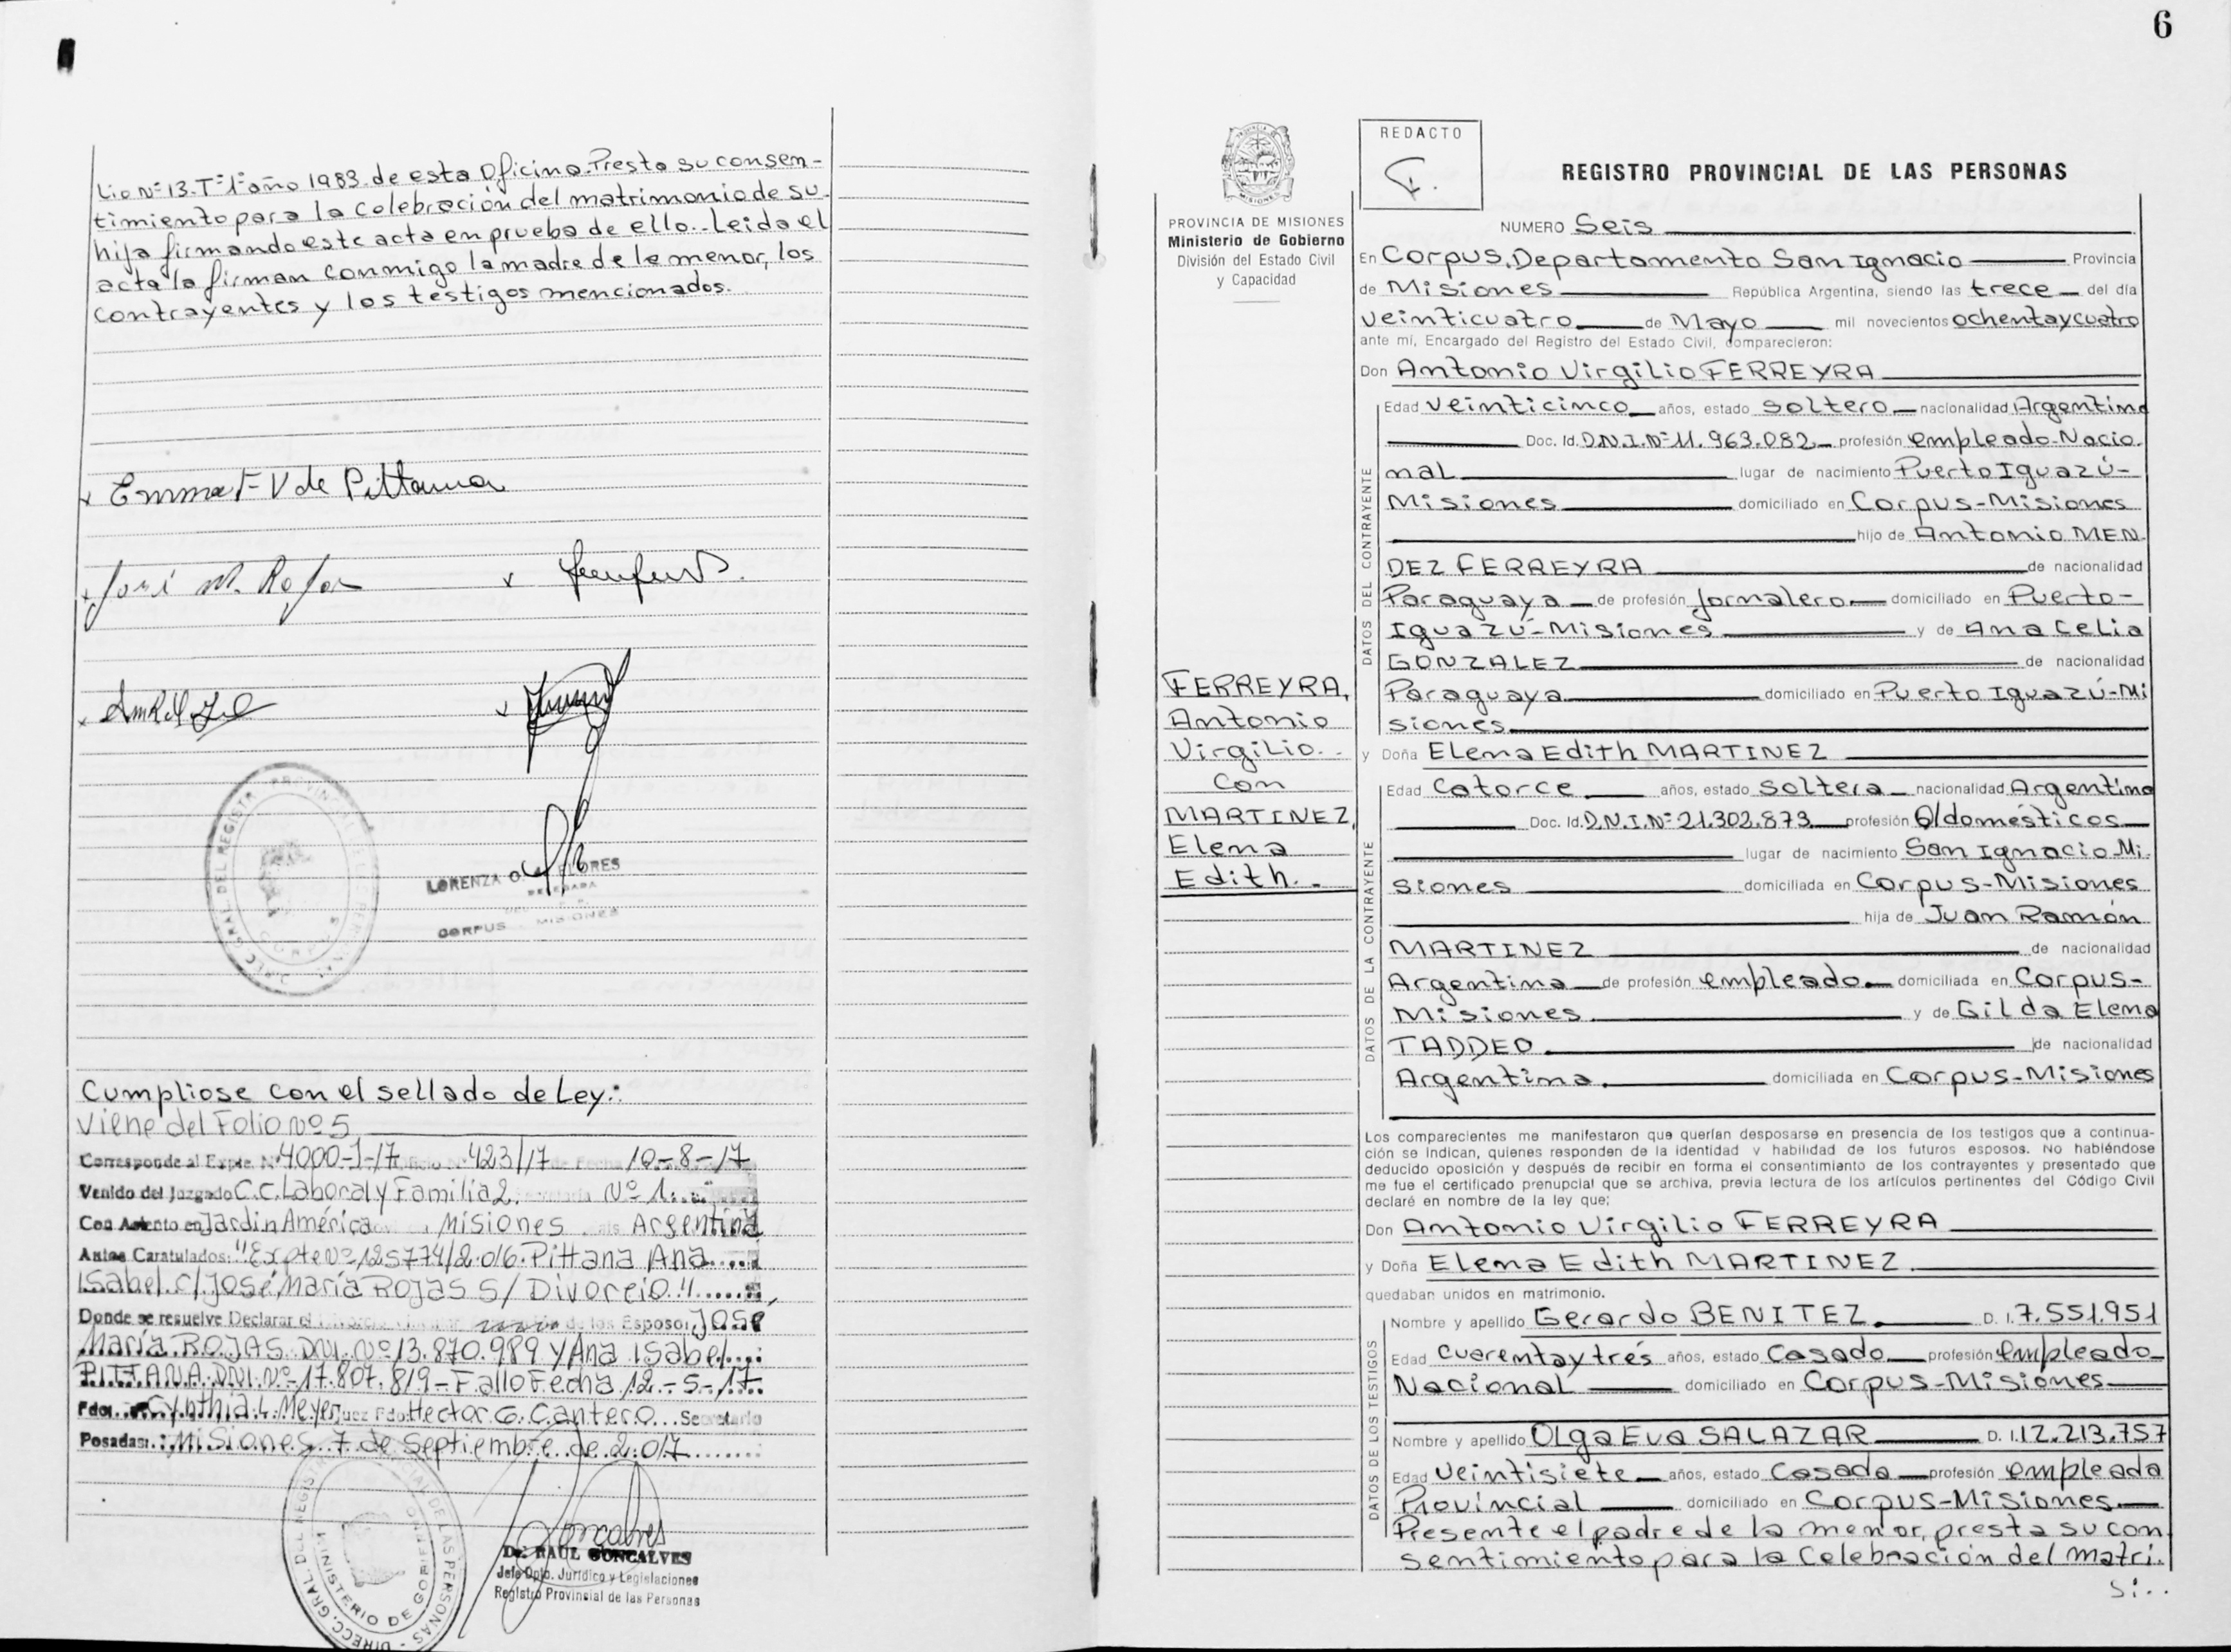 lio Nº 13. Tº 1º año 1983. de esta Oficina. Presta su consen-
timiento para la celebración del matrimonio de su
hija firmando este acta en prueba de ello.. Leida el
acta la firman conmigo la madre de la menor, los
contrayentes y los testigos mencionados.
x Emma F V de Pittana
x José M. Rojas x
x
x
LORENZA FLORES
DELEGADA
CORPUS MISIONES
Cumpliose con el sellado de Ley:.
Viene del Folio Nº 5
Corresponde al Expte. Nº 4000-J-17 423/17 de Fecha 10-8-17
Venido del Juzgado C.C. Laboral y Familia 2. Nº 1.
Con Asiento en Jardin América Misiones Argentina
Autos Caratulados: "Expte Nº 125774/2.016. Pittana Ana
Isabel. c/ José María Rojas S/ Divorcio"
Donde se resuelve Declarar el de los Esposo: José
María ROJAS DNI. Nº 13.870.989 y Ana Isabel
PITTANA. DNI. Nº 17.807.819 - Fallo Fecha 12-5-17
Fdo. Cynthia. L. Meyer Juez Fdo. Hector G. Cantero Secretario
Posadas: Misiones. 7 de Septiembre de 2.017
Goncalves
Dr. RAUL GONCALVES
Jefe Dpto. Jurídico y Legislaciones
Registro Provincial de las Personas
6
REDACTO
F.
PROVINCIA DE MISIONES
Ministerio de Gobierno
División del Estado Civil
y Capacidad
REGISTRO PROVINCIAL DE LAS PERSONAS
NUMERO Seis
En Corpus, Departamento San Ignacio Provincia
de Misiones República Argentina, siendo las trece del día
veinticuatro de Mayo mil novecientos ochenta y cuatro
ante mí, Encargado del Registro del Estado Civil, comparecieron:
Don Antonio Virgilio FERREYRA
DATOS DEL CONTRAYENTE
Edad veinticinco años, estado soltero nacionalidad Argentina
Doc. Id. D.N.I. Nº 11.963.082 profesión empleado-Nacio.
nal lugar de nacimiento Puerto Iguazú-
Misiones domiciliado en Corpus-Misiones
hijo de Antonio MEN
DEZ FERREYRA de nacionalidad
Paraguaya de profesión Jornalero domiciliado en Puerto-
Iguazú-Misiones y de Ana Celia
GONZALEZ de nacionalidad
Paraguaya domiciliado en Puerto Iguazú-Mi
siones
FERREYRA,
Antonio
Virgilio..
Con
MARTINEZ,
Elena
Edith.-
y Doña Elena Edith MARTINEZ
DATOS DE LA CONTRAYENTE
Edad Catorce años, estado soltera nacionalidad Argentina
Doc. Id. D.N.I. Nº 21.302.873 profesión Q/domésticos
lugar de nacimiento San Ignacio Mi.
siones domiciliada en Corpus-Misiones
hija de Juan Ramón
MARTINEZ de nacionalidad
Argentina de profesión empleado domiciliada en Corpus-
Misiones y de Gilda Elena
TADDEO de nacionalidad
Argentina domiciliada en Corpus-Misiones
Los comparecientes me manifestaron que querían desposarse en presencia de los testigos que a continua-
ción se indican, quienes responden de la identidad y habilidad de los futuros esposos. No habiéndose
deducido oposición y después de recibir en forma el consentimiento de los contrayentes y presentado que
me fue el certificado prenupcial que se archiva, previa lectura de los artículos pertinentes del Código Civil
declaré en nombre de la ley que;
Don Antonio Virgilio FERREYRA
y Doña Elena Edith MARTINEZ
quedaban unidos en matrimonio.
DATOS DE LOS TESTIGOS
Nombre y apellido Gerardo BENITEZ D. I. 7.551.951
Edad cuarenta y trés años, estado Casado profesión empleado
Nacional domiciliado en Corpus-Misiones
Nombre y apellido Olga Eva SALAZAR D. I. 12.213.757
Edad veintisiete años, estado Casada profesión empleada
Provincial domiciliado en Corpus-Misiones
Presente el padre de la menor, presta su con
sentimiento para la Celebración del matri.
Si..